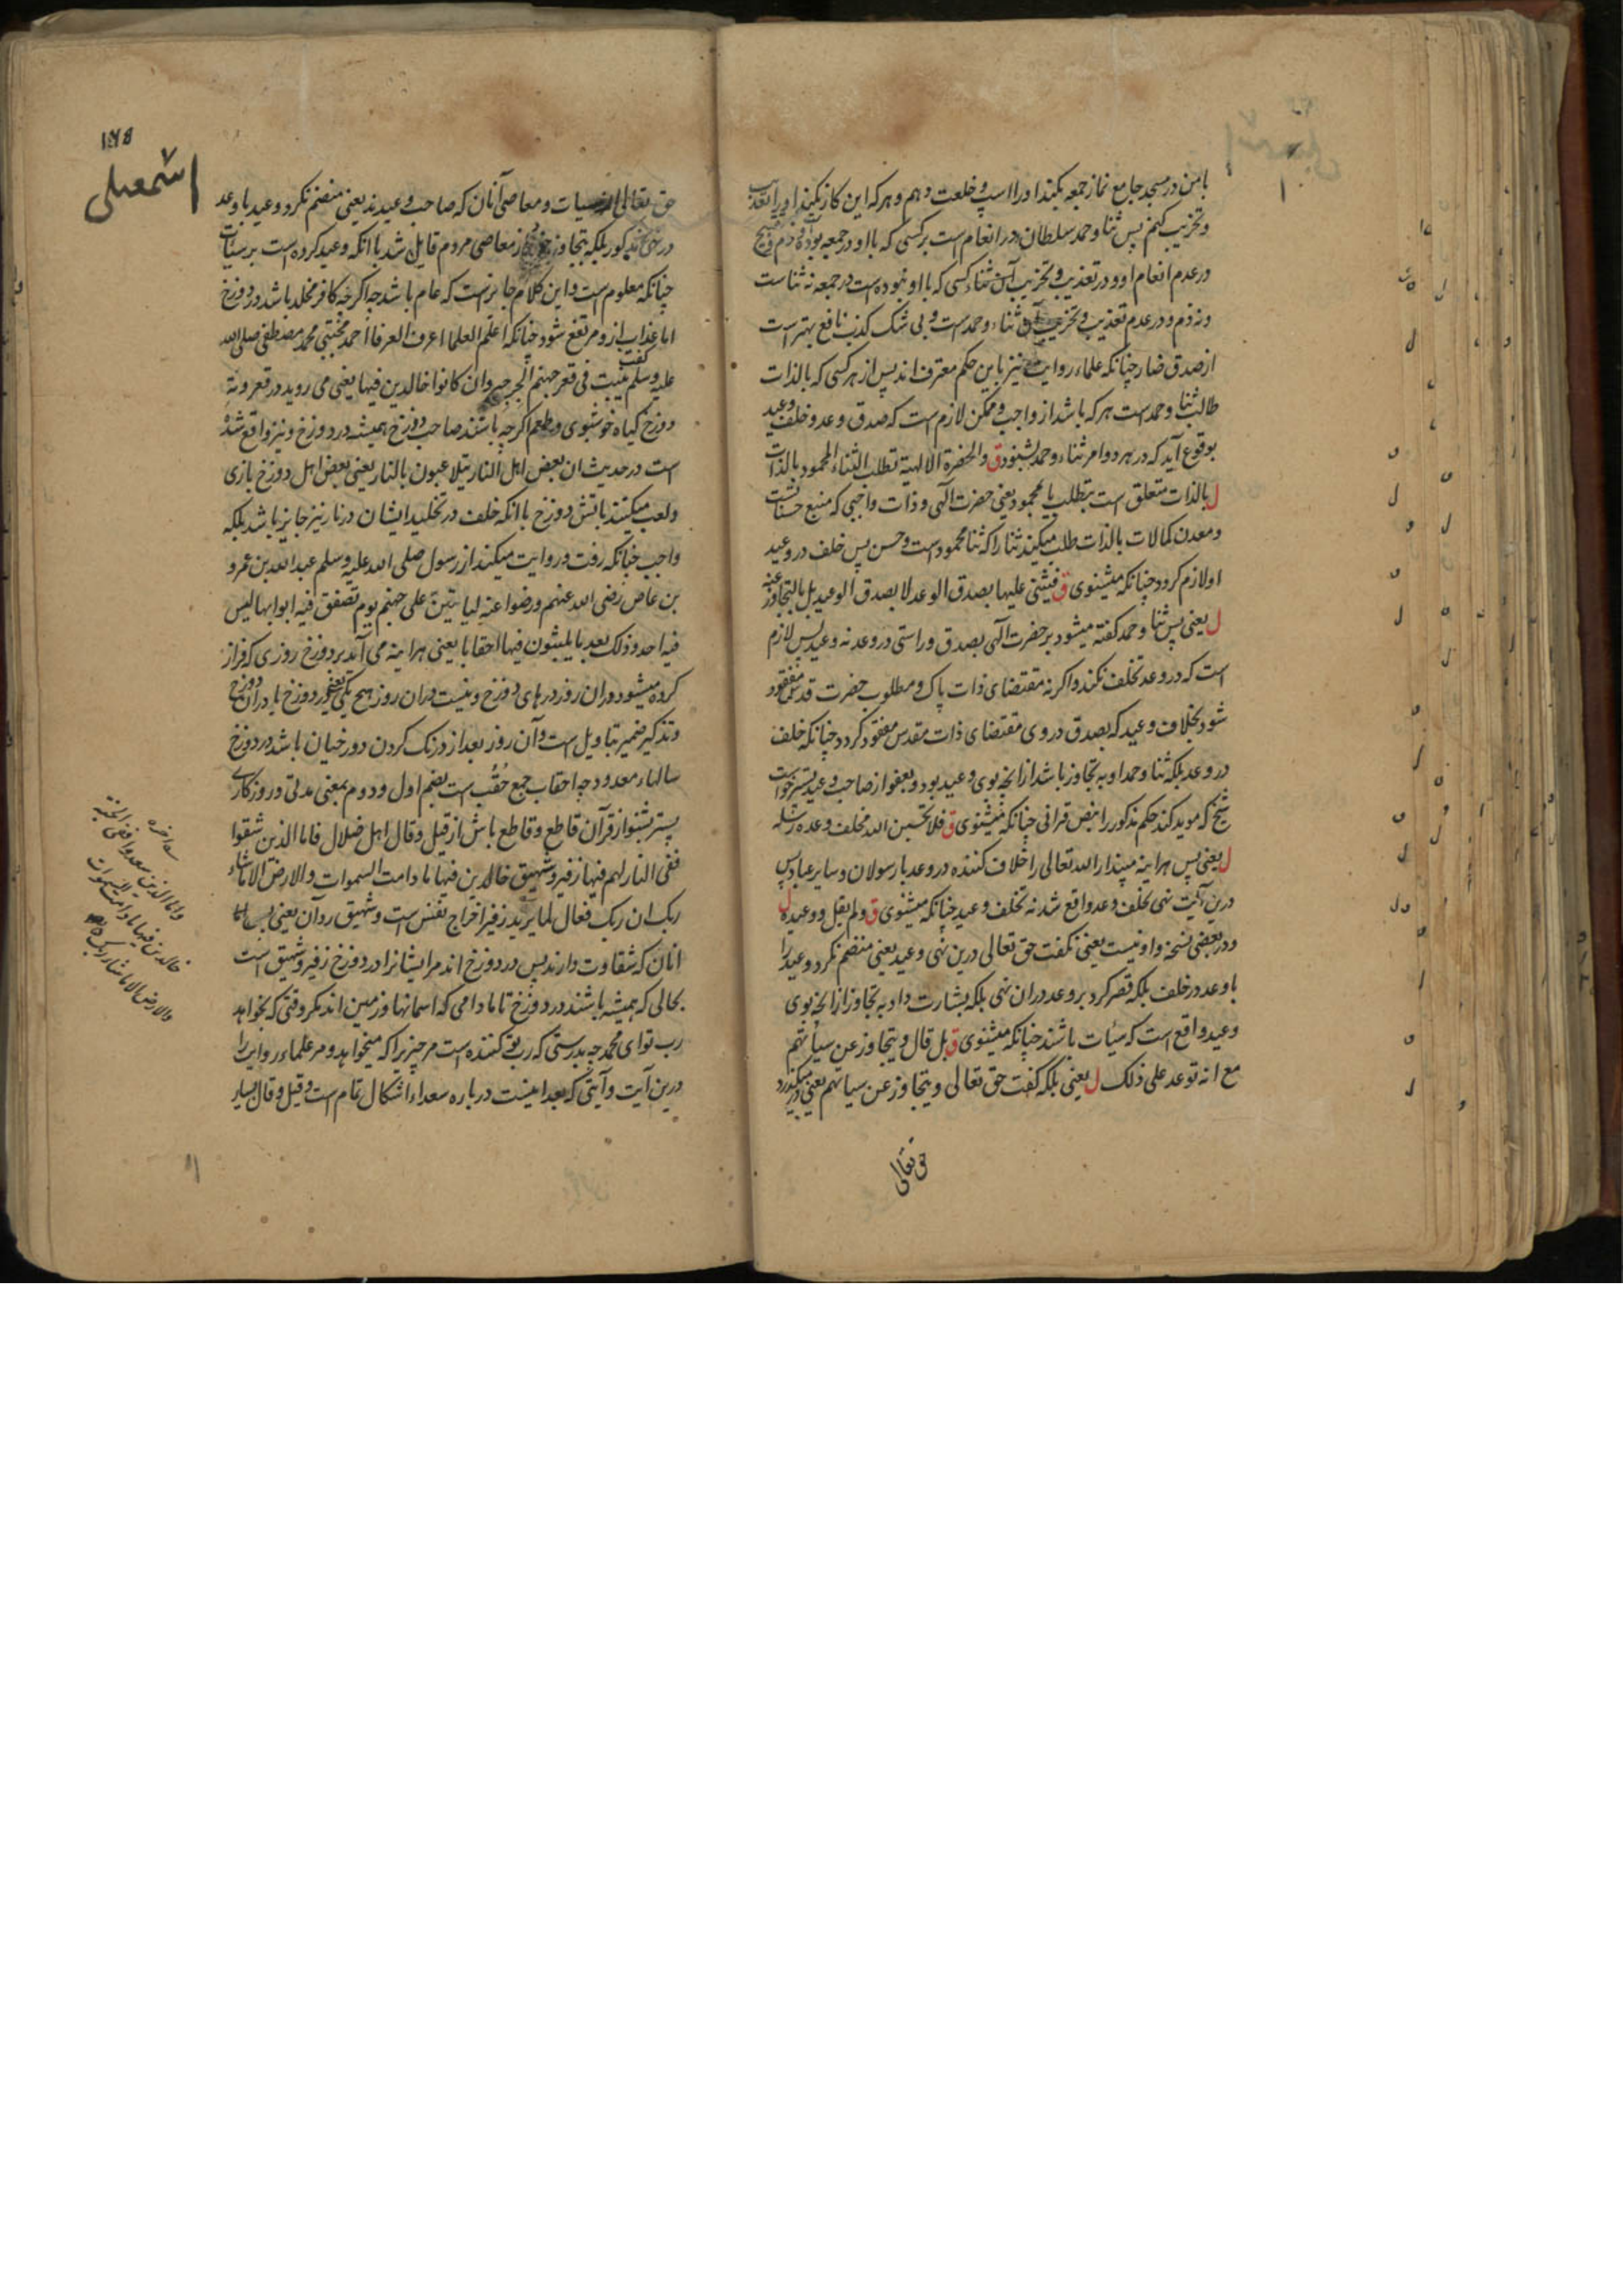 با من در مسجد جامع نماز جمعه بکند او را اسپ و خلعت دهم و هر که این کار نکند او را تعذیب
و تخریب کنم پس ثنا و حمد سلطان در انعام است بر کسی که با او در جمعه بوده و ذم و قبیح
در عدم انعام او و در تعذیب و تخریب آن ثناء کسی که با او نبوده است در جمعه نه ثنا ست
و نه ذم و در عدم تعذیب و تخریب آن ثناء و حمد ست و بی شک کذب نافع بهتر است
از صدق ضار چنانکه علماء روایت نیز باین حکم معترف اند پس از هر کسی که بالذات
طالب ثنا و حمد ست هر که باشد از واجب و ممکن لازم است که صدق وعد و خلف وعید
بوقوع آید که در هر دو امر ثناء و حمد بشنود ق والحضرة الالهیة تطلب الثناء المحمود بالذات
ل بالذات متعلق است بتطلب یا بمحمود یعنی حضرت الٓهی و ذات واجبی که منبع حسنا تست
و معدن کمالات بالذات طلب میکند ثنا را که ثنا محمود ست و حسن پس خلف در وعید
او لازم کردد چنانکه میشنوی ق فیثنی علیها بصدق الوعد لا بصدق الوعید بل بالتجاوز عنه
ل یعنی پس ثنا و حمد کفته میشود بر حضرت الٓهی بصدق و راستی در وعد نه وعید پس لازم
است که در وعد تخلف نکند و اکر نه مقتضای ذات پاک و مطلوب حضرت قدس مفقود
شود بخلاف وعید که بصدق در وی مقتضای ذات مقدس مفقود کردد چنانکه خلف
در وعد بلکه ثنا و حمد او به تجاوز باشد از انچه بوی وعید بود و بعفو از صاحب وعید پستر خواست
شیخ که موید کند حکم مذکور را بنص قرانی چنانکه میشنوی ق فلا تحسبن الله مخلف وعده رسله
ل یعنی پس هراینه مپندار الله تعالی را خلاف کننده در وعد با رسولان و سایر عباد پس
درین آیت نهی تخلف وعد واقع شد نه تخلف وعید چنانکه میشنوی ق و لم یقل و وعیده ل
و در بعضی نسخه واو نیست یعنی نکفت حق تعالی درین نهی وعید یعنی منضم نکرد وعید را
با وعد در خلف بلکه قصر کرد بر وعد در ان نهی بلکه بشارت داد به تجاوز از انچه بوی
وعید واقع است که سیئات باشند چنانکه میشنوی ق بل قال و یتجاوز عن سیاتهم
مع انه توعد علی ذلک ل یعنی بلکه کفت حق تعالی و یتجاوز عن سیاتهم یعنی در میکذرد
حق تعالی
اسمعیلی
حق تعالی از سیات و معاصی آنان که صاحب وعیدند یعنی منضم نکرد وعید با وعد
در نهی مذکور بلکه بتجاوز از معاصی مردم قایل شد با انکه وعید کرده است بر سیئات
چنانکه معلوم است و این کلام جایز است که عام باشد چه اکرچه کافر مخلد باشد در دوزخ
اما عذاب ازو مرتفع شود چنانکه اعلم العلما اعرف العرفا احمد مجتبی محمد مصطفی صلی الله
علیه وسلم کفت ینبت فی قعر جهنم الجرجیر وان کانوا خالدین فیها یعنی می روید در قعر و تهٔ
دوزخ کیاه خوشبوی و طعم اکرچه باشند صاحب دوزخ همیشه در دوزخ و نیز واقع شدهٔ
است در حدیث ان بعض اهل النار یتلاعبون بالنار یعنی بعض اهل دوزخ بازی
و لعب میکنند باتش دوزخ با انکه خلف در تخلید ایشان در نار نیز جایز باشد بلکه
واجب چنانکه رفت و روایت میکند از رسول صلی الله علیه وسلم عبدالله بن عمرو
بن عاص رضی الله عنهم و رضوا عنه لیاتین علی جهنم یوم تصفق فیه ابوابها لیس
فیها احد و ذلک بعد ما یلبثون فیها احقابا یعنی هراینه می آید بر دوزخ روزی که فراز
کرده میشود در ان روز درهای دوزخ و نیست در ان روز هیچ یکی یعنی در دوزخ یا در ان روز
و تذکیر ضمیر بتاویل است و آن روز بعد از درنک کردن دوزخیان باشد در دوزخ
سالهاء معدود چه احقاب جمع حُقُب است بضم اول و دوم بمعنی مدتی و روزکاری
پستر بشنو از قرآن قاطع و قاطع باش از قیل و قال اهل ضلال فاما الذین شقوا
ففی النار لهم فیها زفیر و شهیق خالدین فیها ما دامت السموات والارض الا ماشاء
ربک ان ربک فعال لما یرید زفیر اخراج نفس است و شهیق رد آن یعنی پس اما
انان که شقاوت دارند پس در دوزخ اند مر ایشانرا در دوزخ زفیر و شهیق است
بحالی که همیشه باشند در دوزخ تا مادامی که اسمانها و زمین اند مکر وقتی که بخواهد
رب تو ای محمد چه بدرستی که رب تو کننده است مر چیزیرا که میخواهد و مر علماء روایت را
درین آیت و آیتی که بعد اینست درباره سعداء اشکال تمام است و قیل و قال بسیار
واما الذین سعدوا ففی الجنة
خالدین فیها ما دامت السموات
والارض الا ماشاء ربک